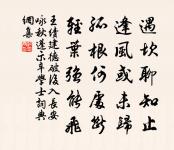 遇坎聊知止
逢風或未歸
孤根何處斷
輕葉強能飛
王績建德破後入長安
詠秋蓬示辛學士詞典
網集